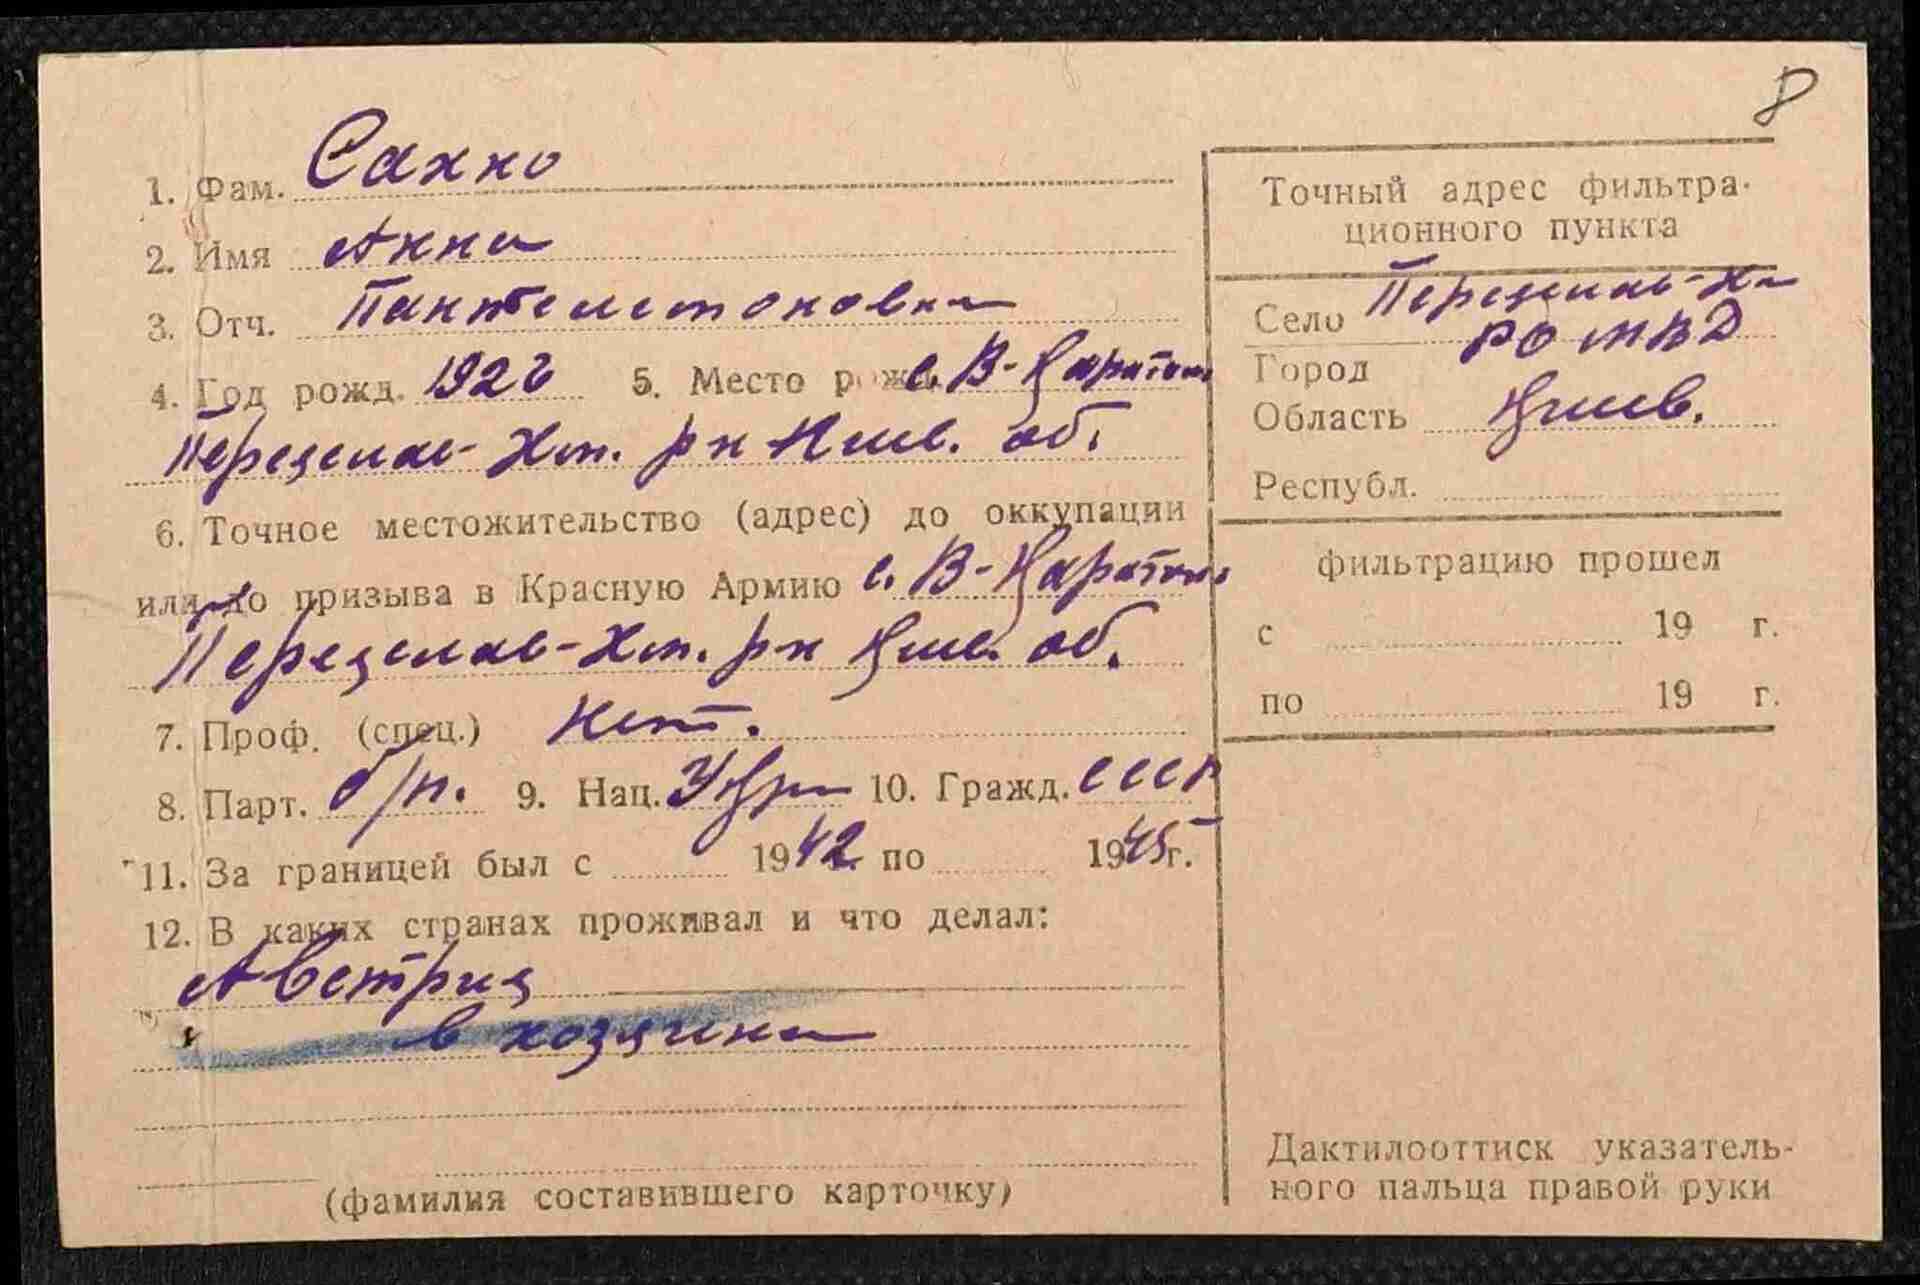 8
1. Фам. Сахно
2. Имя Анна
3. Отч. Пантелемоновна
4. Год рожд. 1926 5. Место рожд. с. В-Каратуль
Переяслав-Хм. р-н Киев. об.
6. Точное местожительство (адрес) до оккупации
или до призыва в Красную Армию с. В-Каратуль
Переяслав-Хм. р-н Киев. об.
7. Проф. (спец.) нет.
8. Парт. б/п. 9. Нац. Укр 10. Гражд. СССР
11. За границей был с 1942 по 1945 г.
12. В каких странах проживал и что делал:
Австрия
в хозяина
(фамилия составившего карточку)
Точный адрес фильтра-
ционного пункта
Село Переяслав-Хм
РО МВД
Город
Область Киев.
Республ.
фильтрацию прошел
с 19 г.
по 19 г.
Дактилооттиск указатель-
ного пальца правой руки